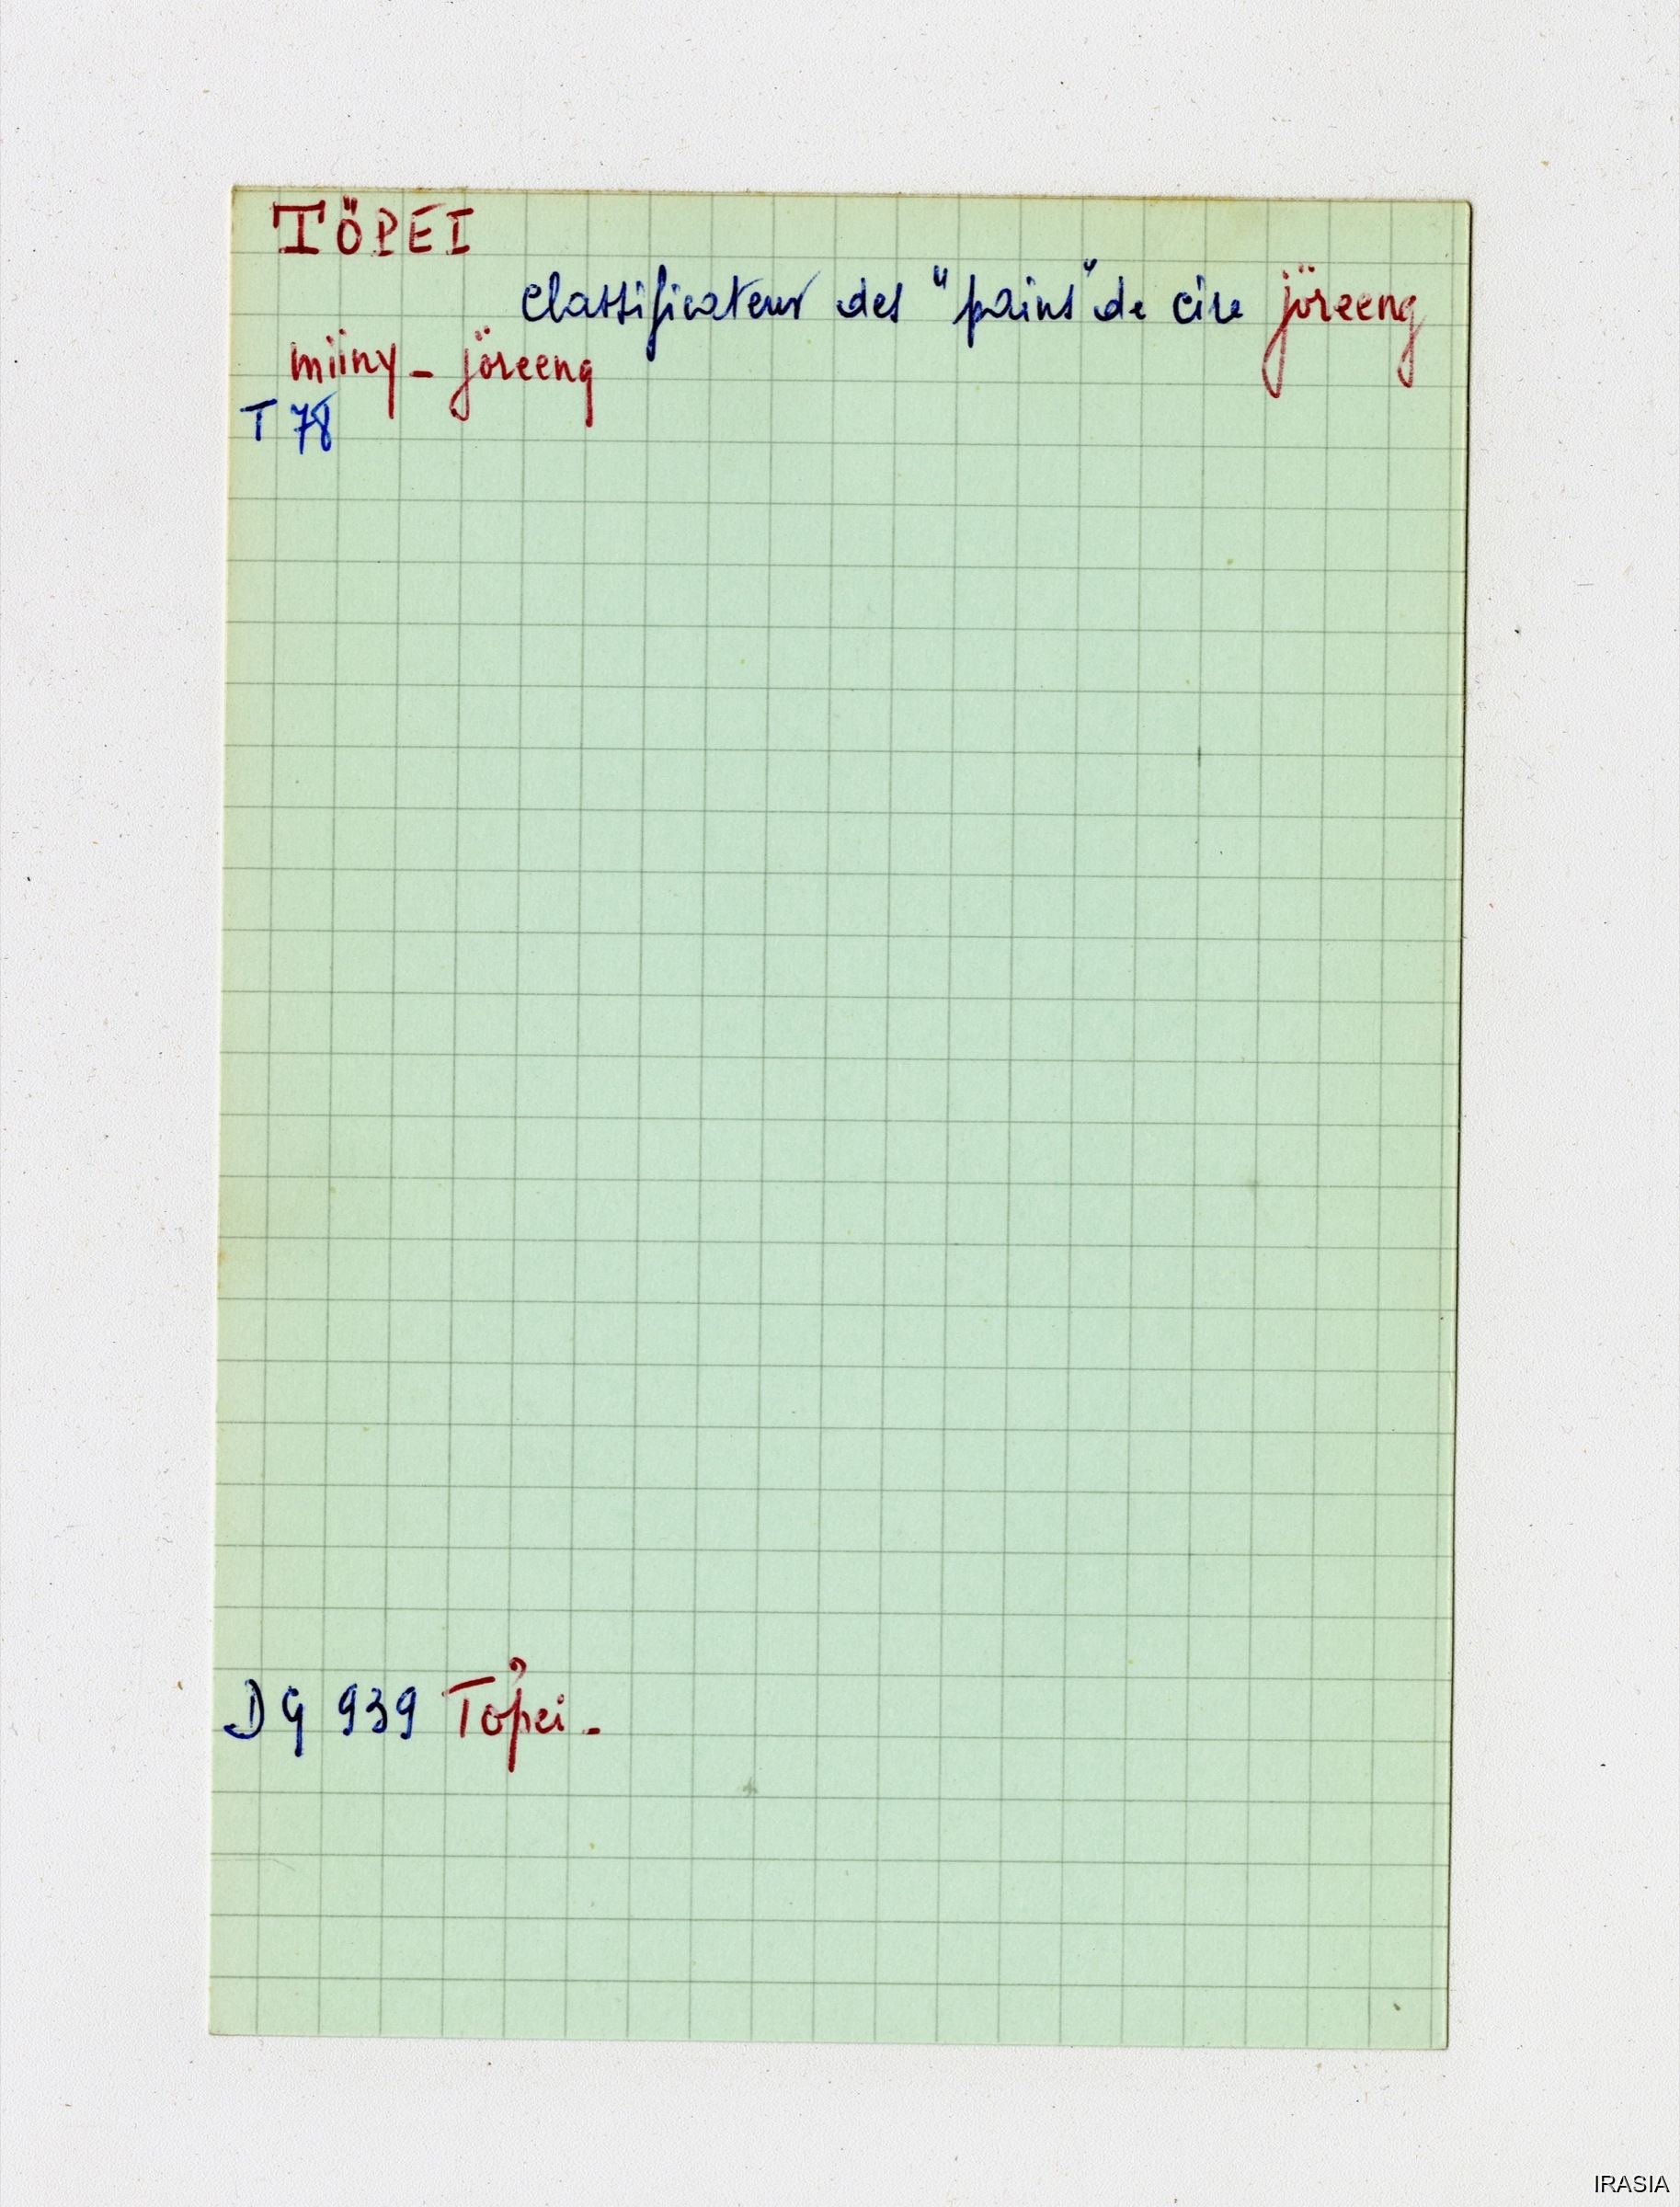 TÖPEI
classificateur des "pains" de cire jöreeng
miiny - jöreeng
T 78
DG 939 Tơpei -
IRASIA